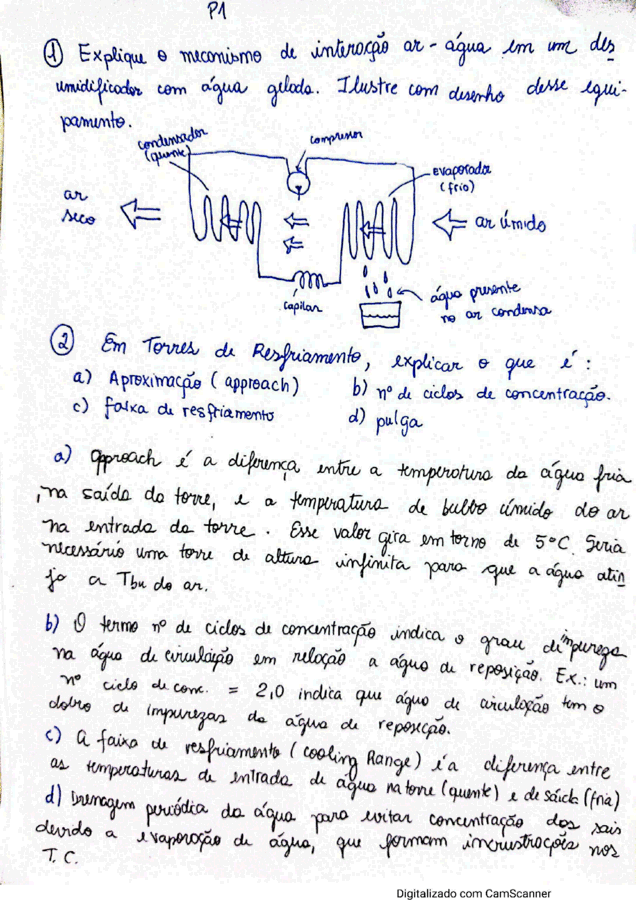 P1
① Explique o mecanismo de interação ar-água em um des
umidificador com água gelada. Ilustre com desenho desse equi-
pamento.
condensador
(quente)
compressor
evaporador
(frio)
ar
seco
ar úmido
capilar
água presente
no ar condensa
② Em Torres de Resfriamento, explicar o que é:
a) Aproximação (approach)
b) nº de ciclos de concentração.
c) faixa de resfriamento
d) pulga
a) Approach é a diferença entre a temperatura da água fria
, na saída da torre, e a temperatura de bulbo úmido do ar
na entrada da torre. Esse valor gira em torno de 5°C. Seria
necessário uma torre de altura infinita para que a água atin
ja a Tbu do ar.
b) O termo nº de ciclos de concentração indica o grau de impureza
na água de circulação em relação a água de reposição. Ex.: um
nº ciclo de conc. = 2,0 indica que água de circulação tem o
dobro de impurezas da água de reposição.
c) A faixa de resfriamento (cooling Range) é a diferença entre
as temperaturas de entrada de água na torre (quente) e de saída (fria)
d) Drenagem periódica da água para evitar concentração dos sais
devido a evaporação de água, que formam incrustações nos
T.C.
Digitalizado com CamScanner